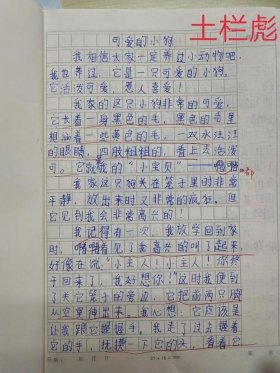 土栏彪
可爱的小狗
我相信大家一定养过小动物吧,
我也养过,它是一只可爱的小狗,
它活泼可爱,惹人喜爱!
我家的这只小狗非常的可爱,
它长着一身黑色的毛,黑色的毛里
掺杂着一些黄色的毛,一双水汪汪
的眼睛,四肢粗粗的,看上去活泼
可。它就我的“小宝贝”
都
我家这只狗关在笼子里时非常
平静,放出来时又非常的疯狂,但
它见到我会非常高兴的!
我记得有一次,我放学回到家
时,
见了
高兴的叫了起来
好像在说:“小主人!小主人!你终
于回来了,我好想你!”这时我便到
了关它笼子的旁边,它把前两只脚
从空里伸出来,我心想,它应该是
让我跟它握握手,我走了过去握着
它的手,抚摸一下它的头,看着它